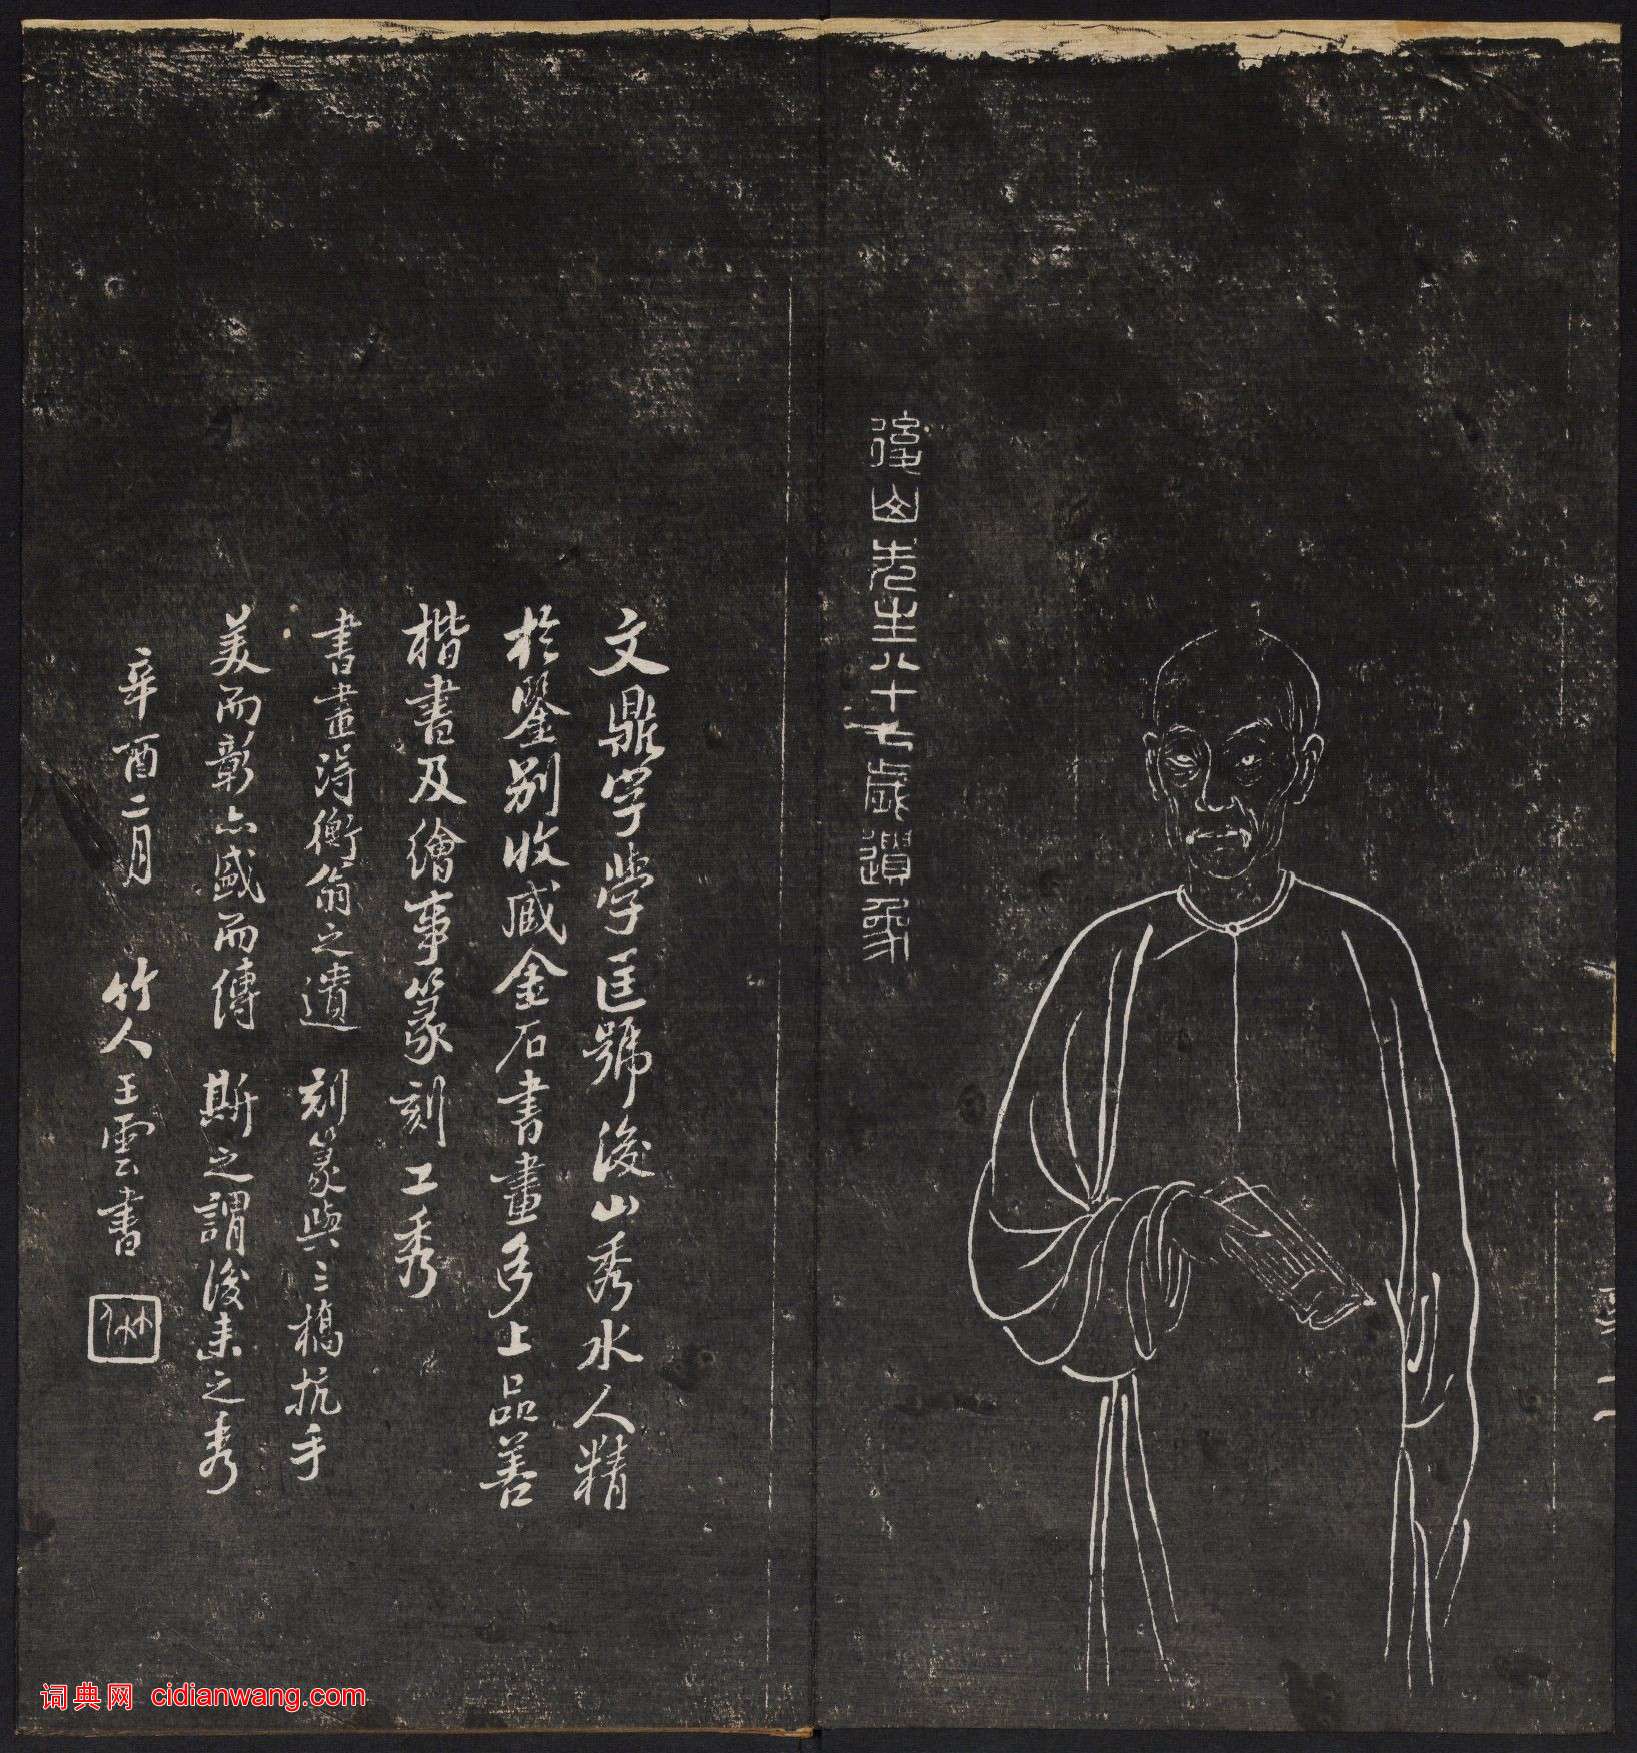 後山先生八十七歲遺象
文鼎字學匡號後山秀水人精
於鑒别收藏金石書畫多上品善
楷書及繪事篆刻工秀
書畫得衡翁之遺 刻篆與三橋抗手
美而彰亦盛而傳 斯之謂後来之秀
辛酉二月 竹人王雲書
词典网 cidianwang.com